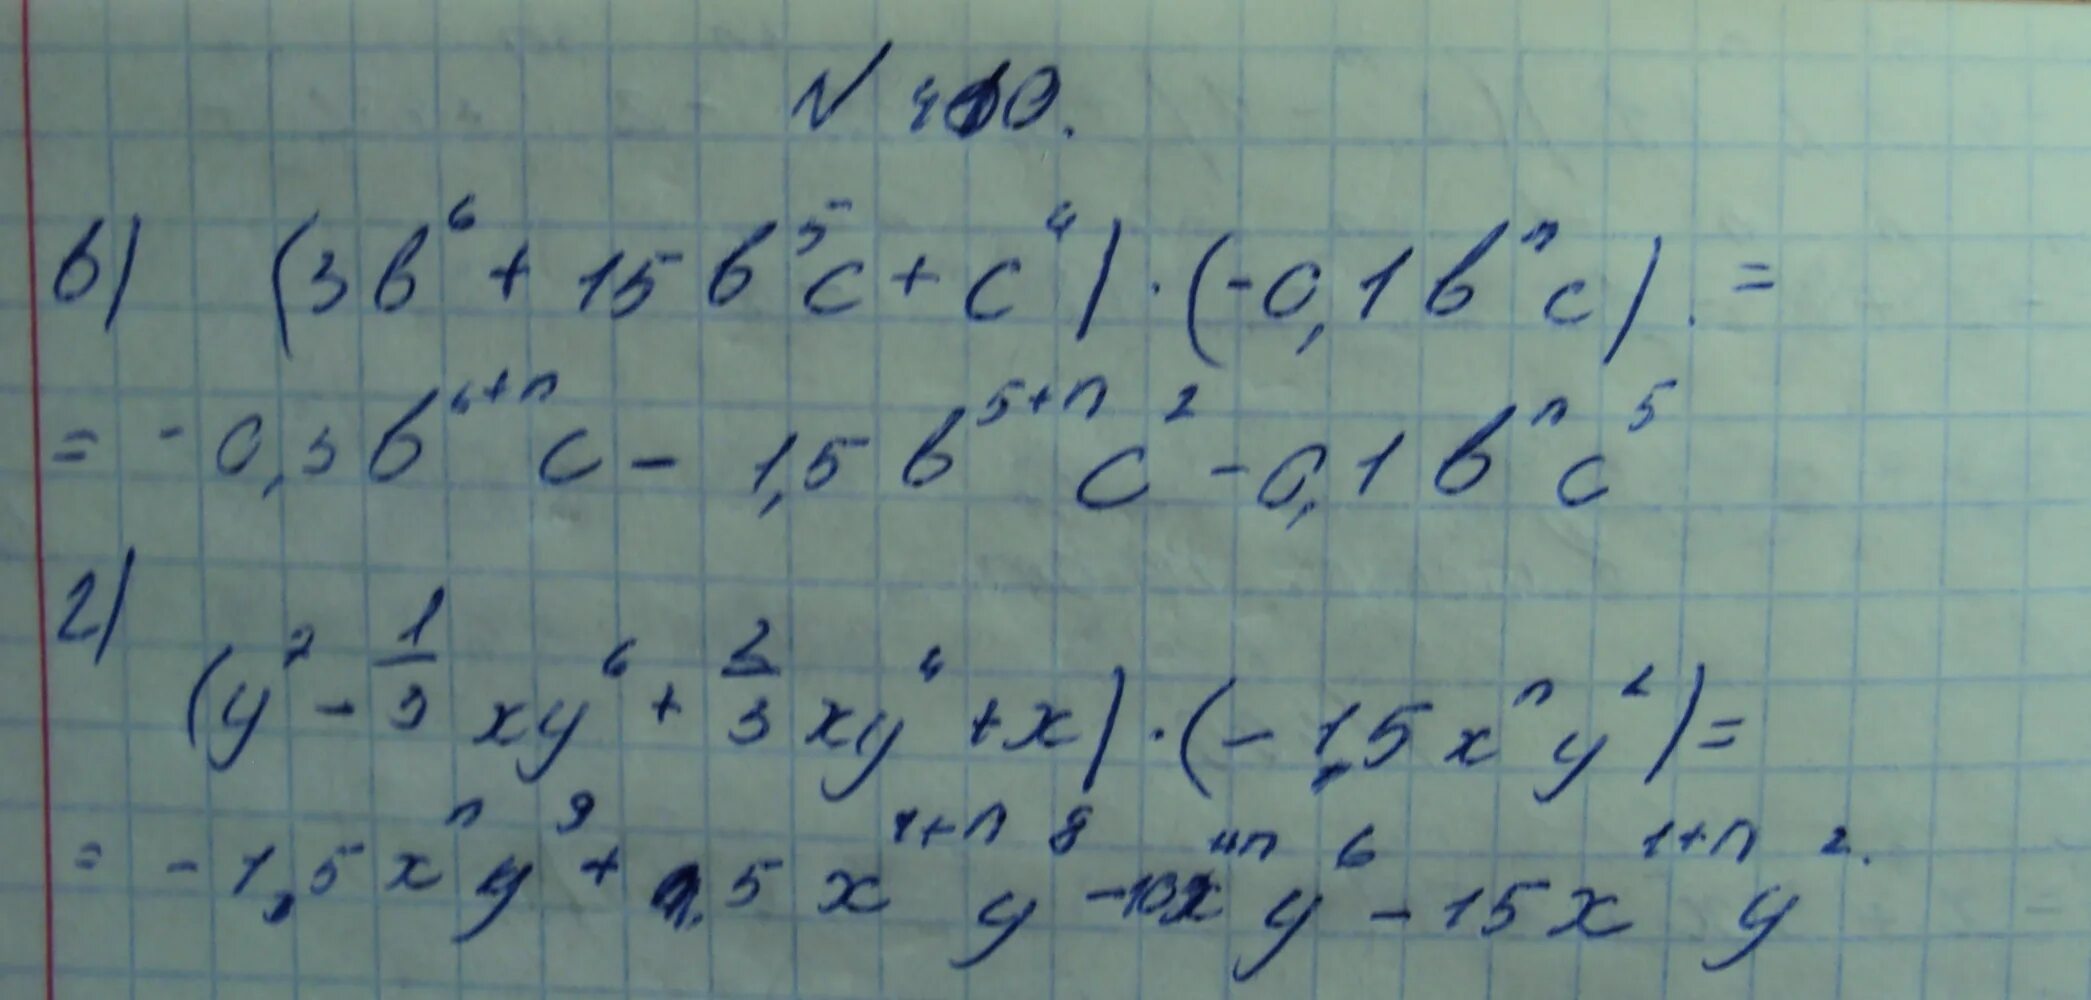 N 410.
в) (3b⁶ + 15b⁵c + c⁴) · (-0,1bⁿc) =
= -0,3b⁶⁺ⁿc - 1,5b⁵⁺ⁿc² - 0,1bⁿc⁵
г) (y⁷ - 1/3 xy⁶ + 2/3 xy⁴ + x) · (-1,5xⁿy²) =
= -1,5xⁿy⁹ + 0,5x¹⁺ⁿy⁸ - y⁶ - 15x¹⁺ⁿy².